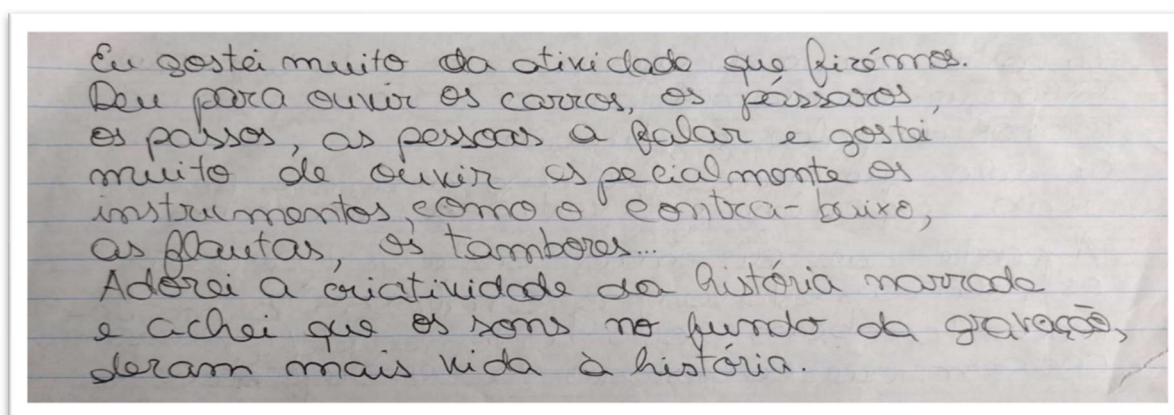 Eu gostei muito da atividade que fizémos.
Deu para ouvir os carros, os pássaros,
os passos, as pessoas a falar e gostei
muito de ouvir especialmente os
instrumentos, como o contra-baixo,
as flautas, os tambores...
Adorei a criatividade da história narrada
e achei que os sons no fundo da gravação,
deram mais vida à história.